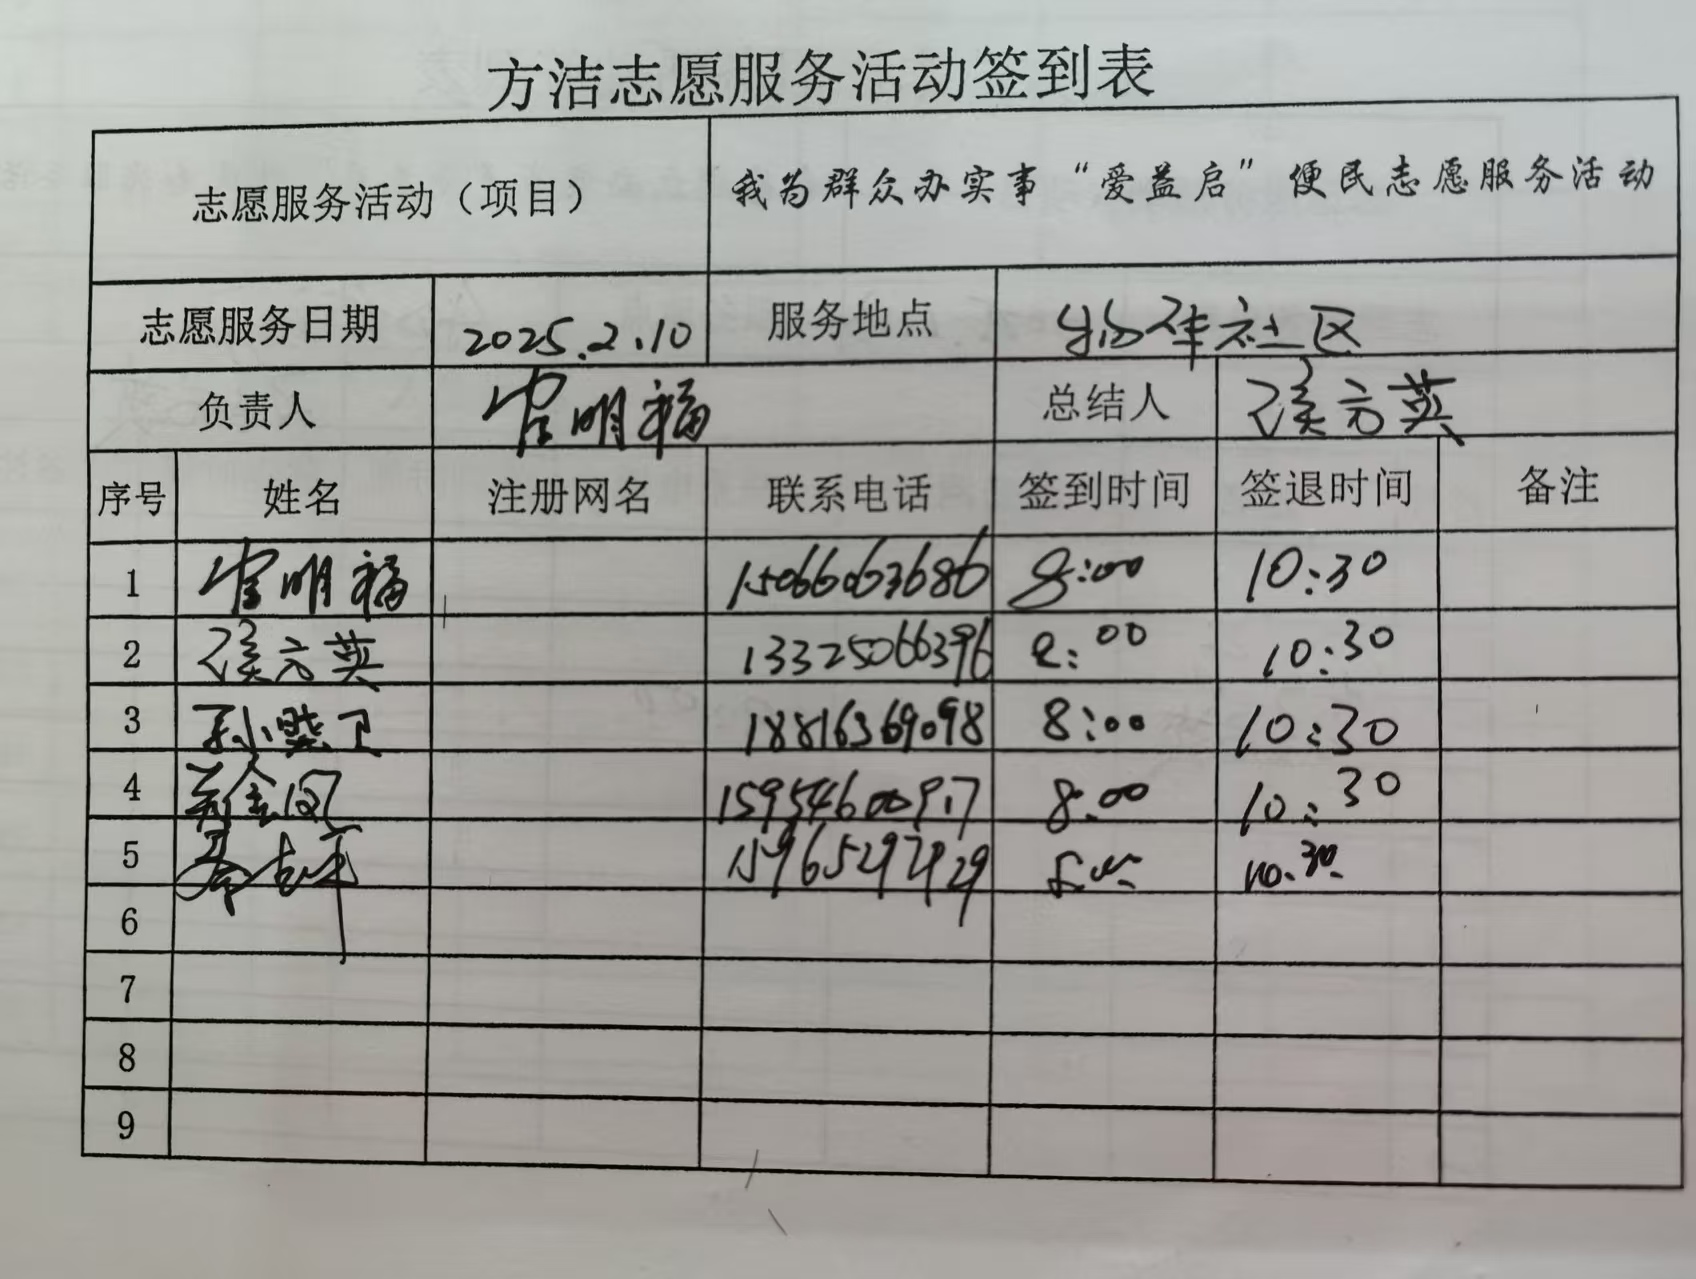 方洁志愿服务活动签到表
志愿服务活动（项目） 我为群众办实事“爱益启”便民志愿服务活动
志愿服务日期 2025.2.10 服务地点 社区
负责人 明福 总结人 侯元英
序号 姓名 注册网名 联系电话 签到时间 签退时间 备注
1 明福 15066063686 8:00 10:30
2 侯元英 13325066396 8:00 10:30
3 孙 卫 18816369098 8:00 10:30
4 金 15954600917 8:00 10:30
5 志平 15965297929 10:30
6
7
8
9